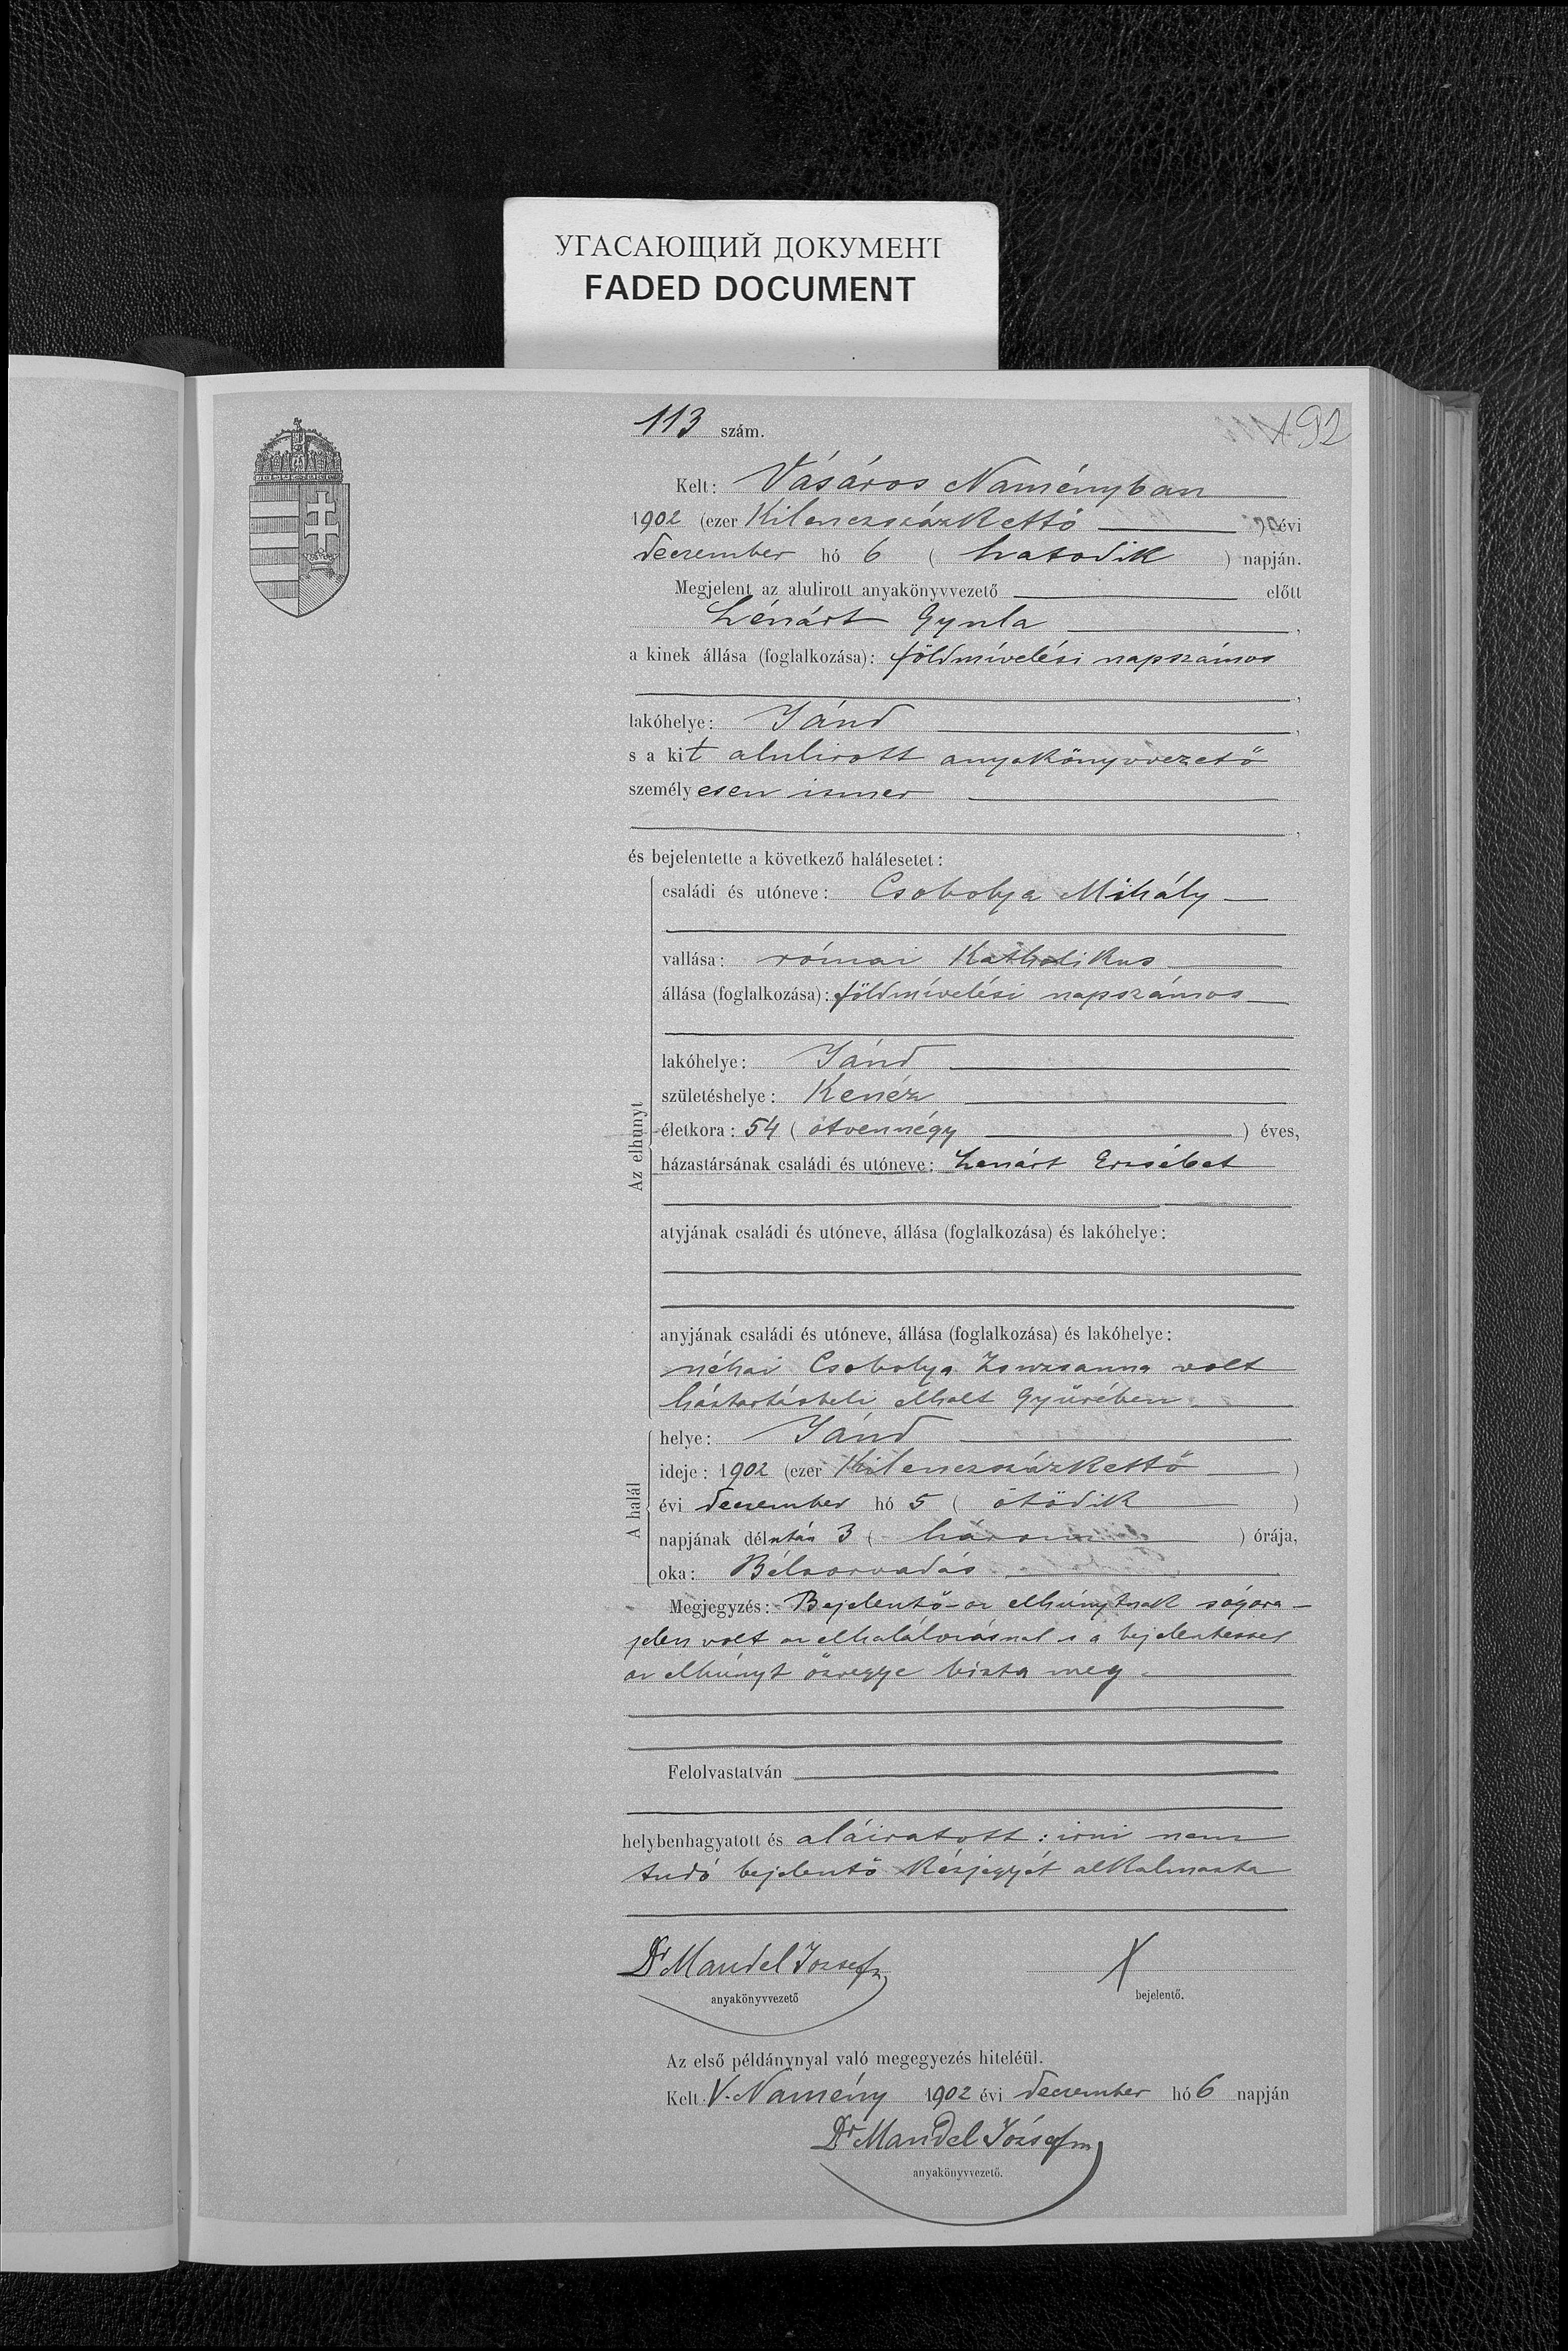 УГАСАЮЩИЙ ДОКУМЕНТ
FADED DOCUMENT
192
113 szám.
Kelt: Vásáros Naményban
1902 (ezer Kilenczszázkettő ) évi
deczember hó 6 ( hatodik ) napján.
Megjelent az alulirott anyakönyvvezető előtt
Lénárt Gyula ,
a kinek állása (foglalkozása): földmívelési napszámos
,
lakóhelye: Jánd ,
s a kit alulirott anyakönyvvezető
személyesen ismer
,
és bejelentette a következő halálesetet:
Az elhunyt
családi és utóneve: Csobolya Mihály
vallása: római Katholikus
állása (foglalkozása): földmívelési napszámos
lakóhelye: Jánd
születéshelye: Kenéz
életkora: 54 ( ötvennégy ) éves,
házastársának családi és utóneve: Lenárt Erzsébet
atyjának családi és utóneve, állása (foglalkozása) és lakóhelye:
anyjának családi és utóneve, állása (foglalkozása) és lakóhelye:
néhai Csobolya Zsuzsanna volt
háztartásbeli elhalt Gyürében
A halál
helye: Jánd
ideje: 1902 (ezer Kilenczszázkettő )
évi deczember hó 5 ( ötödik )
napjának délután 3 ( három ) órája,
oka: Bélsorvadás
Megjegyzés: Bejelentő az elhúnytnak sógora
jelen volt az elhalálozásnál s a bejelentéssel
az elhúnyt özvegye bízta meg
Felolvastatván
helybenhagyatott és aláiratott: irni nem
tudó bejelentő kézjegyét alkalmazta
Dr Mandel József X
anyakönyvvezető bejelentő.
Az első példánynyal való megegyezés hiteléül.
Kelt V. Namény 1902 évi deczember hó 6 napján
Dr Mandel József
anyakönyvvezető.